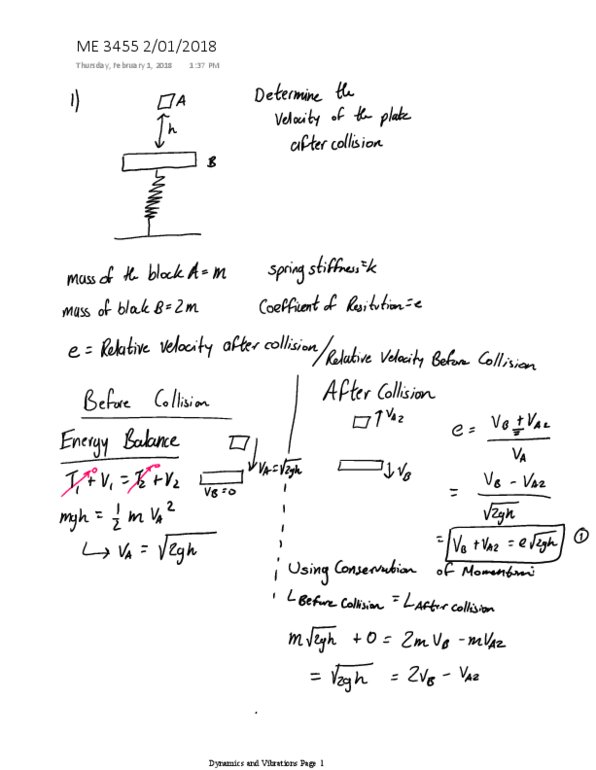 ME 3455 2/01/2018
Thursday, February 1, 2018 1:37 PM
1)
A
h
B
Determine the
Velocity of the plate
after collision
mass of the block A = m spring stiffness = k
mass of block B = 2m Coefficient of Resitution = e
e = Relative velocity after collision / Relative Velocity Before Collision
Before Collision
Energy Balance
T₁ + V₁ = T₂ + V₂
mgh = 1/2 m V_A²
↳ V_A = √2gh
V_A = √2gh
V_B = 0
After Collision
↑ V_A2
↓ V_B
e = (V_B + V_A2) / V_A
= (V_B - V_A2) / √2gh
= V_B + V_A2 = e√2gh ①
Using Conservation of Momentum
L Before Collision = L After collision
m√2gh + 0 = 2m V_B - m V_A2
= √2gh = 2V_B - V_A2
Dynamics and Vibrations Page 1